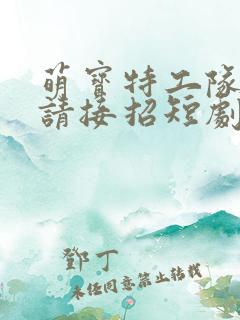 萌寶特工隊
請接招短劇
鄧丁
未經同意禁止轉載